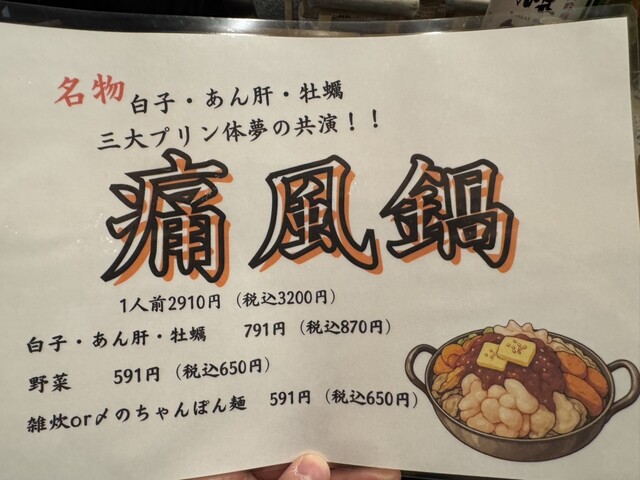 名物
白子・あん肝・牡蠣
三大プリン体夢の共演！！
痛風鍋
1人前2910円（税込3200円）
白子・あん肝・牡蠣 791円（税込870円）
野菜 591円（税込650円）
雑炊or〆のちゃんぽん麺 591円（税込650円）